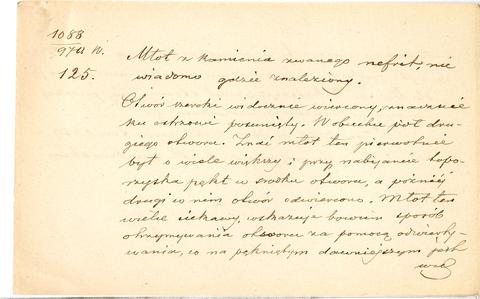 1088
971 W.
125.
Młot z kamienia zwanego nefrit, nie
wiadomo gdzie znaleziony.
Otwór szeroki widocznie wiercony, nadzwyczaj
ku ostrzowi posunięty. W obuchu jest dru-
giego otworu. Znać młot ten pierwotnie
był o wiele większy i przy nabijaniu topo-
rzyska pękł w środku otworu, a później
drugi w nim otwór odwiercono. Młot ten
wielce ciekawy, wskazuje bowiem sposób
otrzymywania otworu za pomocą odwierty-
wania, co na pękniętym dawniejszym jest